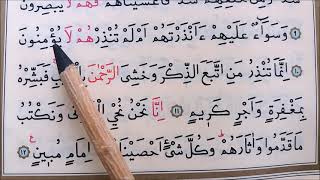 فَهُمْ لَا يُبْصِرُونَ
وَسَوَاءٌ عَلَيْهِمْ ءَاَنْذَرْتَهُمْ اَمْ لَمْ تُنْذِرْهُمْ لَا يُؤْمِنُونَ ﴿١٠﴾
اِنَّمَا تُنْذِرُ مَنِ اتَّبَعَ الذِّكْرَ وَخَشِيَ الرَّحْمٰنَ بِالْغَيْبِ فَبَشِّرْهُ
بِمَغْفِرَةٍ وَاَجْرٍ كَرِيمٍ ﴿١١﴾ اِنَّا نَحْنُ نُحْيِ الْمَوْتٰى وَنَكْتُبُ
مَا قَدَّمُوا وَاٰثَارَهُمْ وَكُلَّ شَيْءٍ اَحْصَيْنَاهُ فِي اِمَامٍ مُبِينٍ ﴿١٢﴾